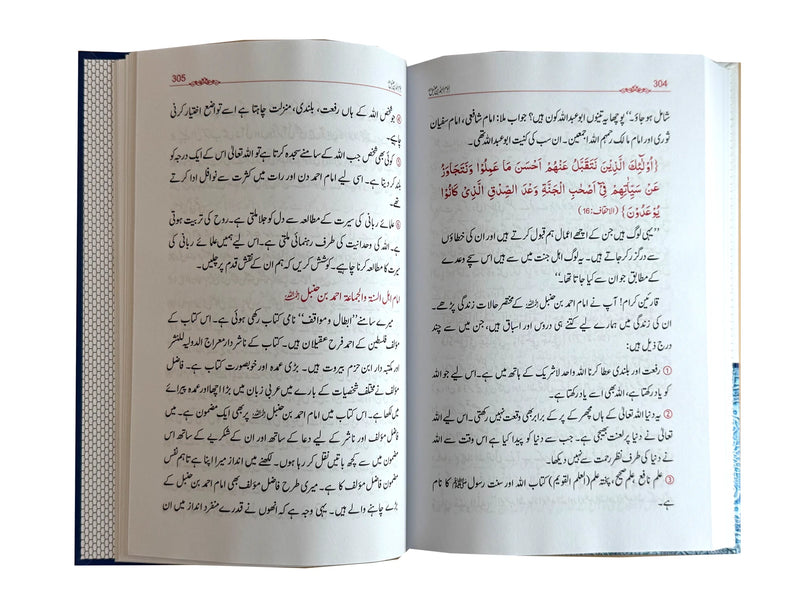 304
شامل ہو جاؤ۔‘‘ پوچھا یہ تینوں ابو عبداللہ کون ہیں؟ جواب ملا: امام شافعی، امام سفیان
ثوری اور امام مالک رحمہم اللہ اجمعین۔ ان سب کی کنیت ابو عبداللہ تھی۔
{أُولٰٓئِكَ الَّذِيْنَ نَتَقَبَّلُ عَنْهُمْ اَحْسَنَ مَا عَمِلُوْا وَنَتَجَاوَزُ
عَنْ سَيِّاٰتِهِمْ فِيْٓ اَصْحٰبِ الْجَنَّةِ وَعْدَ الصِّدْقِ الَّذِيْ كَانُوْا
يُوْعَدُوْنَ} (الاحقاف:16)
’’یہی لوگ ہیں جن کے اچھے اعمال ہم قبول کرتے ہیں اور ان کی خطاؤں
سے درگزر کر جاتے ہیں۔ یہ لوگ اہل جنت میں سے ہیں اس سچے وعدے
کے مطابق جو ان سے کیا جاتا تھا۔‘‘
قارئین کرام! آپ نے امام احمد بن حنبل رحمہ اللہ کے مختصر حالات زندگی پڑھے۔
ان کی زندگی میں ہمارے لیے کتنے ہی دروس اور اسباق ہیں، جن میں سے چند
درج ذیل ہیں:
① رفعت اور بلندی عطا کرنا اللہ واحد لاشریک کے ہاتھ میں ہے۔ اس لیے جو اللہ
کو یاد رکھتا ہے، اللہ بھی اسے یاد رکھتا ہے۔
② یہ دنیا اللہ تعالیٰ کے ہاں مچھر کے پر کے برابر بھی وقعت نہیں رکھتی۔ اس لیے اللہ
تعالیٰ نے دنیا پر لعنت بھیجی ہے۔ جب سے دنیا کو پیدا کیا ہے اس وقت سے اللہ
نے دنیا کی طرف نظر رحمت سے نہیں دیکھا۔
③ علم نافع، علم صحیح، پختہ علم (العلم القویم) کتاب اللہ اور سنت رسول ﷺ کا نام
ہے۔
305
④ جو شخص اللہ کے ہاں رفعت، بلندی، منزلت چاہتا ہے اسے تواضع اختیار کرنی
چاہیے۔
⑤ کوئی بھی شخص جب اللہ کے سامنے سجدہ کرتا ہے تو اللہ تعالیٰ اس کے ایک درجہ کو
بلند کر دیتا ہے۔ اسی لیے امام احمد دن اور رات میں کثرت سے نوافل ادا کرتے
تھے۔
⑥ علمائے ربانی کی سیرت کے مطالعہ سے دل کو جلا ملتی ہے۔ روح کی تربیت ہوتی
ہے۔ اللہ کی وحدانیت کی طرف رہنمائی ملتی ہے۔ اس لیے ہمیں علمائے ربانی کی
سیرت کا مطالعہ کرنا چاہیے۔ کوشش کریں کہ ہم ان کے نقش قدم پر چلیں۔
امام اہل السنۃ والجماعۃ احمد بن حنبل رحمہ اللہ
میرے سامنے ’’ابطال ومواقف‘‘ نامی کتاب رکھی ہوئی ہے۔ اس کتاب کے
مؤلف فلسطین کے احمد فرح عقیلان ہیں۔ کتاب کے ناشر دار معراج الدولیہ للنشر
اور مکتبہ دار ابن حزم بیروت ہیں۔ بڑی عمدہ اور خوبصورت کتاب ہے۔ فاضل
مؤلف نے مختلف شخصیات کے بارے میں عربی زبان میں بڑا اچھا اور عمدہ پیرائے
میں لکھا ہے۔ اس کتاب میں امام احمد بن حنبل رحمہ اللہ پر بھی ایک مضمون ہے۔ میں
فاضل مؤلف اور ناشر کے لیے دعا کے ساتھ اور ان کے شکریے کے ساتھ اس
مضمون میں سے کچھ باتیں نقل کر رہا ہوں۔ لکھنے میں انداز میرا اپنا ہے تاہم نفس
مضمون فاضل مؤلف کا ہے۔ میری طرح فاضل مؤلف بھی امام احمد بن حنبل کے
بڑے چاہنے والے ہیں۔ یہی وجہ ہے کہ انھوں نے قدرے منفرد انداز میں ان